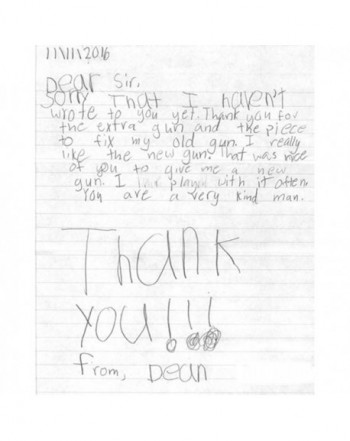 11/11/2016
Dear Sir,
Sorry That I haven't
wrote to you yet. Thank you for
the extra gun and the piece
to fix my old gun. I really
like the new gun. That was nice
of you to give me a new
gun. I played with it often.
You are a very kind man.
Thank
you!!!
from, Dean